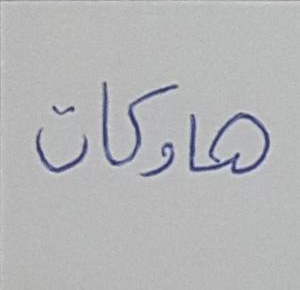 هاوکات